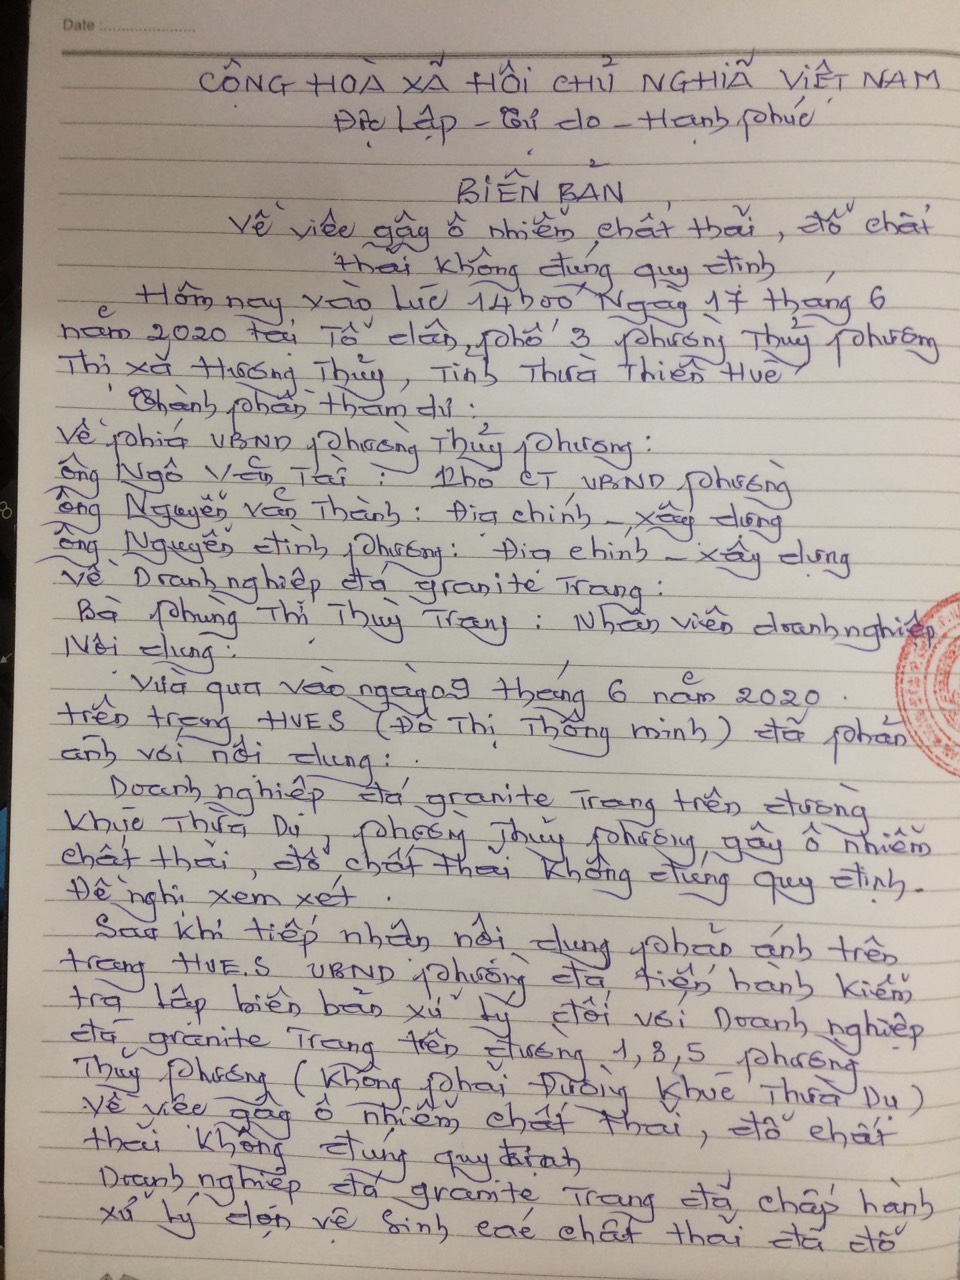 Date :
CỘNG HOÀ XÃ HỘI CHỦ NGHĨA VIỆT NAM
Độc Lập - Tự do - Hạnh phúc
BIÊN BẢN
Về việc gây ô nhiễm chất thải, đổ chất
thải không đúng quy định
Hôm nay vào lúc 14h00 Ngày 17 tháng 6
năm 2020 tại Tổ dân phố 3 phường Thuỷ phương
Thị xã Hương Thuỷ, Tỉnh Thừa Thiên Huế
Thành phần tham dự:
Về phía UBND phường Thuỷ phương:
ông Ngô Văn Tài : Phó CT UBND phường
ông Nguyễn Văn Thành: Địa chính - xây dựng
ông Nguyễn đình phương: Địa chính - xây dựng
Về Doanh nghiệp đá granite Trang:
Bà phùng Thị Thuỳ Trang: Nhân viên doanh nghiệp
Nội dung:
Vừa qua vào ngày 09 tháng 6 năm 2020
trên trang HUES (Đô Thị Thông minh) đã phản
ánh với nội dung:
Doanh nghiệp đá granite Trang trên đường
Khúc Thừa Dụ, phường Thuỷ phương, gây ô nhiễm
chất thải, đổ chất thải không đúng quy định.
Đề nghị xem xét.
Sau khi tiếp nhận nội dung phản ánh trên
trang HUE.S UBND phường đã tiến hành kiểm
tra lập biên bản xử lý đối với Doanh nghiệp
đá granite Trang trên đường 1,3,5 phường
Thuỷ phương (không phải Đường Khúc Thừa Dụ)
về việc gây ô nhiễm chất thải, đổ chất
thải không đúng quy định
Doanh nghiệp đá granite Trang đã chấp hành
xử lý dọn vệ sinh các chất thải đã đổ